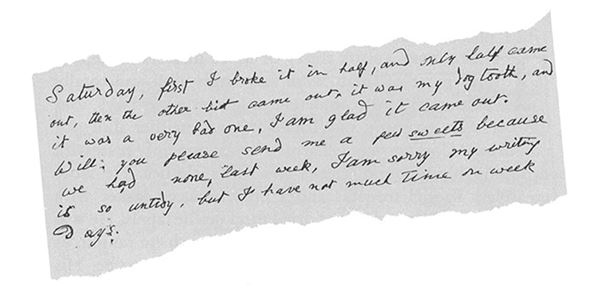 Saturday, first I broke it in half, and only half came
out, then the other bit came out. it was my dog tooth, and
it was a very bad one, I am glad it came out.
Will; you please send me a few sweets because
we had none, last week, I am sorry my writing
is so untidy, but I have not much time on week
Days.